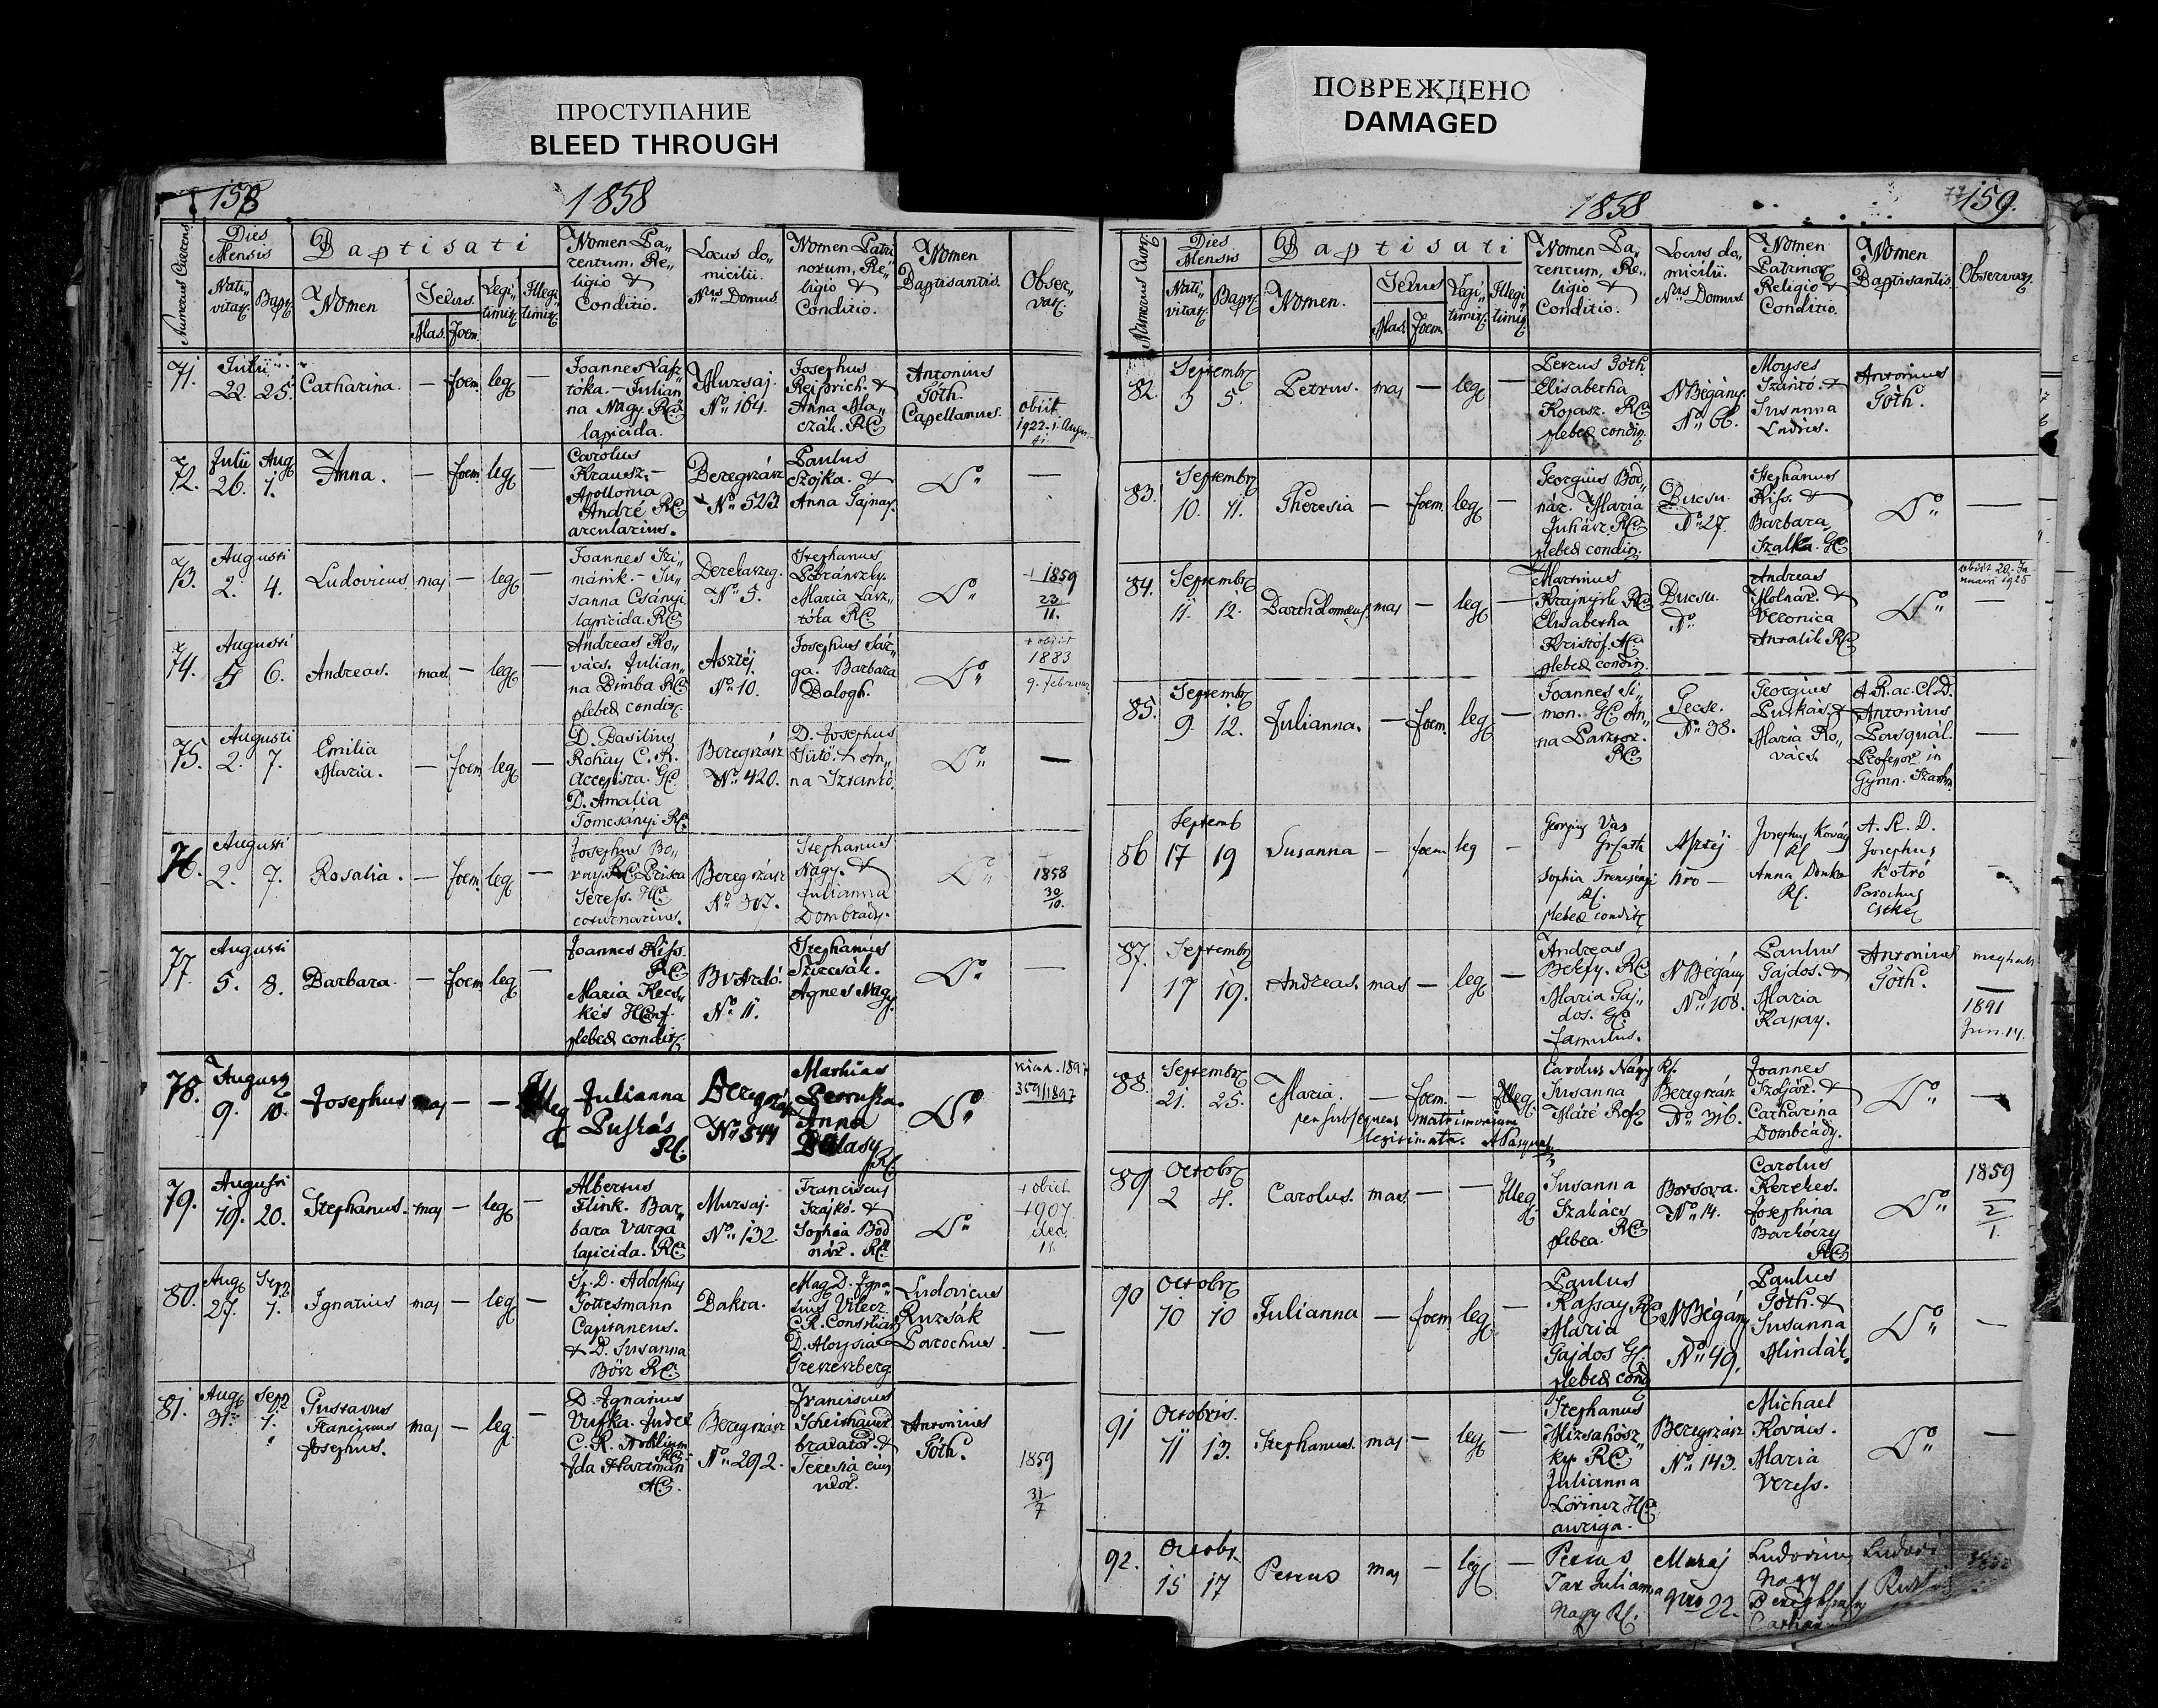 ПРОСТУПАНИЕ
BLEED THROUGH
ПОВРЕЖДЕНО
DAMAGED
158
1858
Numerus Currens
Dies Mensis
Nativitat. Bapt.
Baptisati
Nomen
Sexus
Mas. Foem.
Legitimit.
Illegitimit.
Nomen Pa„
rentum, Re„
ligio &
Conditio.
Locus do„
micilii.
Nrus Domus.
Nomen Patri
norum, Re„
ligio &
Conditio.
Nomen
Baptisantis.
Obser„
vat.
71.
Julii
22. 25.
Catharina. — foem. leg —
Joannes Lasz
tóka. — Julian„
na Nagy. RC
lapicida.
Muzsaj.
No 164.
Josephus
& Anna
RC
Antonius
Tóth.
Capellanus.
obiit
1922. 1.
72.
Julii Aug
26. 1.
Anna. — foem. leg —
Carolus
Krausz. —
Apollonia
André RC
arcularius.
Beregszász
No 523
Paulus
Szojka. &
Anna Gajnas.
Do —
73.
Augusti
2. 4.
Ludovicus mas — leg —
Joannes Szi„
mánik. — Su„
sanna Csányi
lapicida. RC
Derekaszeg.
No 5.
Stephanus
Maria Lász„
tóka RC
Do
+ 1859
23
11.
74.
Augusti
5 6.
Andreas. mas — leg —
Andreas Ko„
vács. Julian„
na Dimba RC
plebeæ condit.
Asztéj.
No 10.
Josephus Sár„
ga. Barbara
Balogh.
Do
+ obiit
1883
9. februar
75.
Augusti
2. 7.
Emilia
Maria. — foem leg —
D. Basilius
Rohay C. R.
Accessista. GC
D. Amalia
Tomcsányi RC
Beregszász
No 420.
D. Josephus
Sütő. & An„
na Szranko.
Do —
76.
Augusti
2. 7.
Rosalia. — foem leg —
Josephus Bo„
ray. RC Prisca
Teress. HC
coturnarius.
Beregszász
No 307.
Stephanus
Nagy. &
Julianna
Dombrády.
Do
1858
30
10.
77.
Augusti
5. 8.
Barbara. — foem leg —
Joannes Kiss
RC
Maria Kecs„
kés
plebeæ condit.
BvArdó.
No 11.
Stephanus
Agnes Nagy.
Do —
78.
August
9. 10.
Josephus mas — — Illeg
Julianna
Puskás
RC
Beregszász
No 544
Mathias
Petruska.
Anna
Do
1897
359/1897
79.
Augusti
19. 20.
Stephanus. mas — leg —
Albertus
Flink. Bar„
bara Varga
lapicida. RC
Muzsaj.
No 132.
Franciscus
Szajkó. &
Sophia Bod
nár. RC
Do
+ obiit
1907
dec.
11.
80.
Aug Sept
27. 7.
Ignatius mas — leg —
Sp. D. Adolphus
Gottesmann
Capitaneus.
& D. Susanna
RC
Bakta.
Mag. D. Igna„
tius Vitéz
C. R. Consiliar
D. Aloysia
Ludovicus
Ruzsák
Parochus. —
81.
Aug Sept
31. 7.
Gustavus
Franciscus
Josephus. mas — leg —
D. Ignatius
Vufka. Judex
C. R. Nobilium
RC
Ida Hartman
AC.
Beregszász
No 292.
Franciscus
Teresia ejus
uxor.
Antonius
Tóth.
1859
31
7
1858
159.
Numerus Curr.
Dies Mensis
Nativitat. Bapt.
Baptisati
Nomen.
Sexus
Mas. Foem.
Legitimit.
Illegitimit.
Nomen Pa„
rentum, Re„
ligio &
Conditio.
Locus do„
micilii.
Nrus Domus
Nomen
Patrinor.
Religio &
Conditio.
Nomen
Baptisantis.
Observat.
82.
Septembr
3 5.
Petrus. mas — leg —
Petrus Tóth.
Elisabetha
Kopasz. RC
plebeæ condit.
NBégány.
No 66.
Moyses
Szántó. &
Susanna
Antonius
Tóth.
83.
Septembr
10. 11.
Theresia — foem. leg —
Georgius Bod„
nár. Maria
Juhász RC
plebeæ condit.
Bucsu.
No 27.
Stephanus
Kiss. &
Barbara
Szalka. GC
Do —
84.
Septembr
11. 12.
Bartholomæus. mas — leg —
Martinus
Krajnyik RC
Elisabetha
Kristóf.
plebeæ condit.
Bucsu.
No
Andreas
Molnár. &
Veronica
Antalik RC
Do
obiit 20. Ja
nuarii 1925
—
85.
Septembr
9. 12.
Julianna. — foem. leg —
Joannes Si„
mon. GC An„
na Pásztor.
RC
Gecse.
No 38.
Georgius
Puskás. &
Maria Ko„
vács.
A. R. ac. Cl. D.
Antonius
Professor in
Gymn. —
86
Septemb
17 19
Susanna — foem leg —
Georgius Vas
Sophia
plebeæ condit
Asztéj
Nro —
Josephus Kovács
RC
Anna Donka
A. R. D.
Josephus
Kotró
Parochus
—
87.
Septembr
17 19.
Andreas. mas — leg —
Andreas
RC
Maria Gaj„
dos. GC
famulus.
NBégány
No 108.
Paulus
Gajdos. &
Maria
Kassay.
Antonius
Tóth.
meghalt
—
1891
Jun. 14.
88.
Septembr
21. 25.
Maria. — foem. — Illeg
per subsequens matrimonium
legitimata.
Carolus Nagy RC.
Susanna
Máté
Beregszász
No 316.
Joannes
&
Catharina
Dombrády.
Do —
89
Octobr
2 4.
Carolus. mas — — Illeg
Susanna
Szakács
plebea. RC
Borsova.
No 14.
Carolus
Kerekes.
Josephina
Barkóczy
RC
Do
1859
2
1.
90
Octobr
10 10
Julianna — foem leg —
Paulus
Kassay RC
Maria
Gajdos GC.
plebeæ cond
NBégány
No 49.
Paulus
Tóth. &
Susanna
Mindák.
Do —
91
Octobris.
11 13.
Stephanus. mas — leg —
Stephanus
RC
Julianna
Lőrincz HC
auriga.
Beregszász
No 143.
Michael
Kovács.
Maria
Veress.
Do —
92.
Octobr.
15 17
Petrus mas — leg —
Petrus
Tar Julianna
Nagy RC.
Muzsaj
Nro 22.
Ludovicus
Nagy